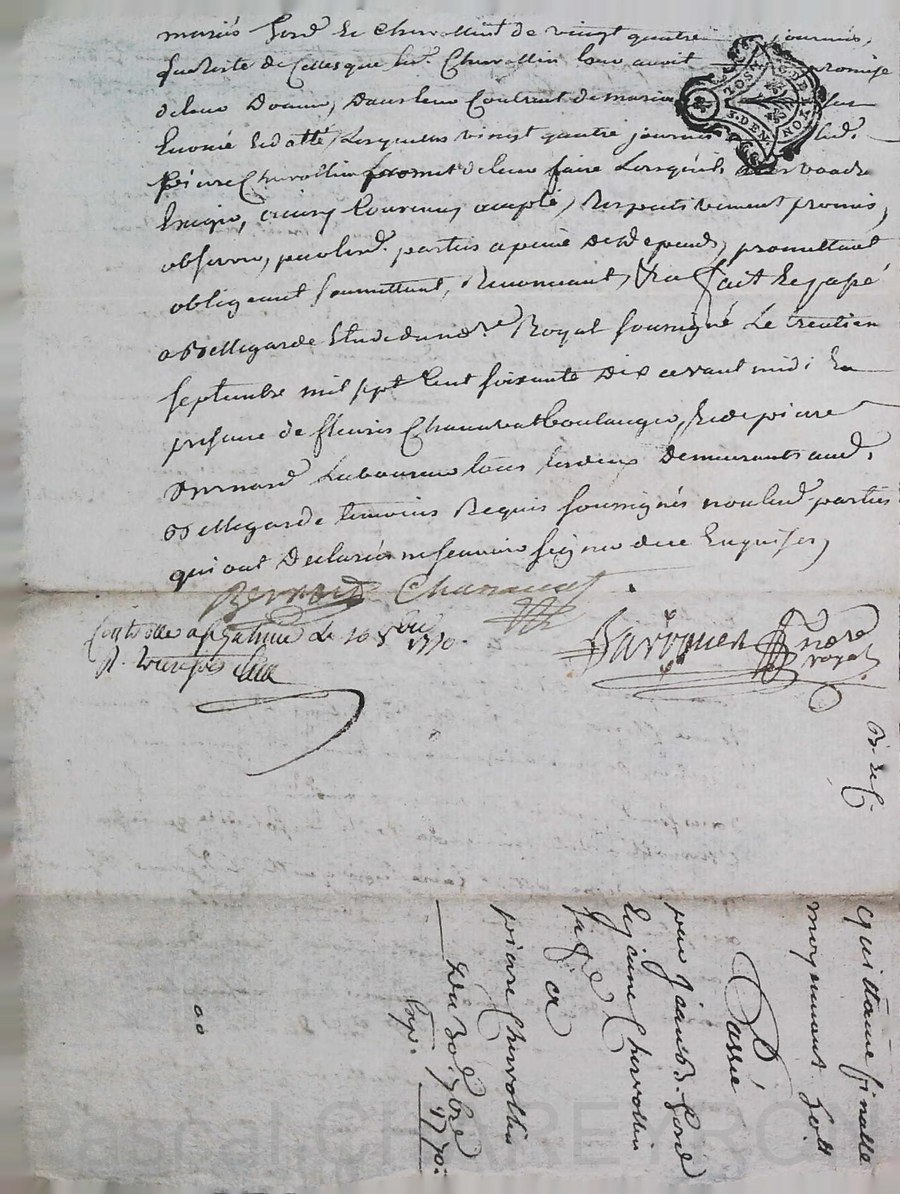 mariés Gord et Chervollin de vingt quatre journées,
de celles que led. Chervollin leur avoit promise
de leur Donner, Dans leur Contrat de mariage
Enoncé et datté, Lesquelles vingt quatre journées led.
pierre Chervollin promet de leur faire Lorsqu'ils
Exigés, ainsy Convenu accepté, Respectivement promis,
observer, par lesd. parties a peine de depends, promettant
obligeant soumettant, Renonceant, &ca fait et passé
a Bellegarde Etude du nore Royal soussigné Le trentieme
septembre mil sept Cent soixante dix avant midi En
presence de fleuris Chanavat boulanger, et de pierre
Bernard Laboureur tous les deux demeurants aud.
Bellegarde temoins Requis soussignés non lesd. parties
qui ont Declarés ne scavoir signer de ce Enquises,
Bernard Chanavat
Controllé a St Galmier Le 10 8bre 1770.
R. treize sols
nore royal.
B. et C.
quittance finalle
moyennant
Passée
par jean B. Gord
et jeanne Chervollin
sa fe
a
pierre Chervollin
Du 30 7bre 1770.
Exp.
DE LYON
3.DEN.
Pascal CHAREYRON